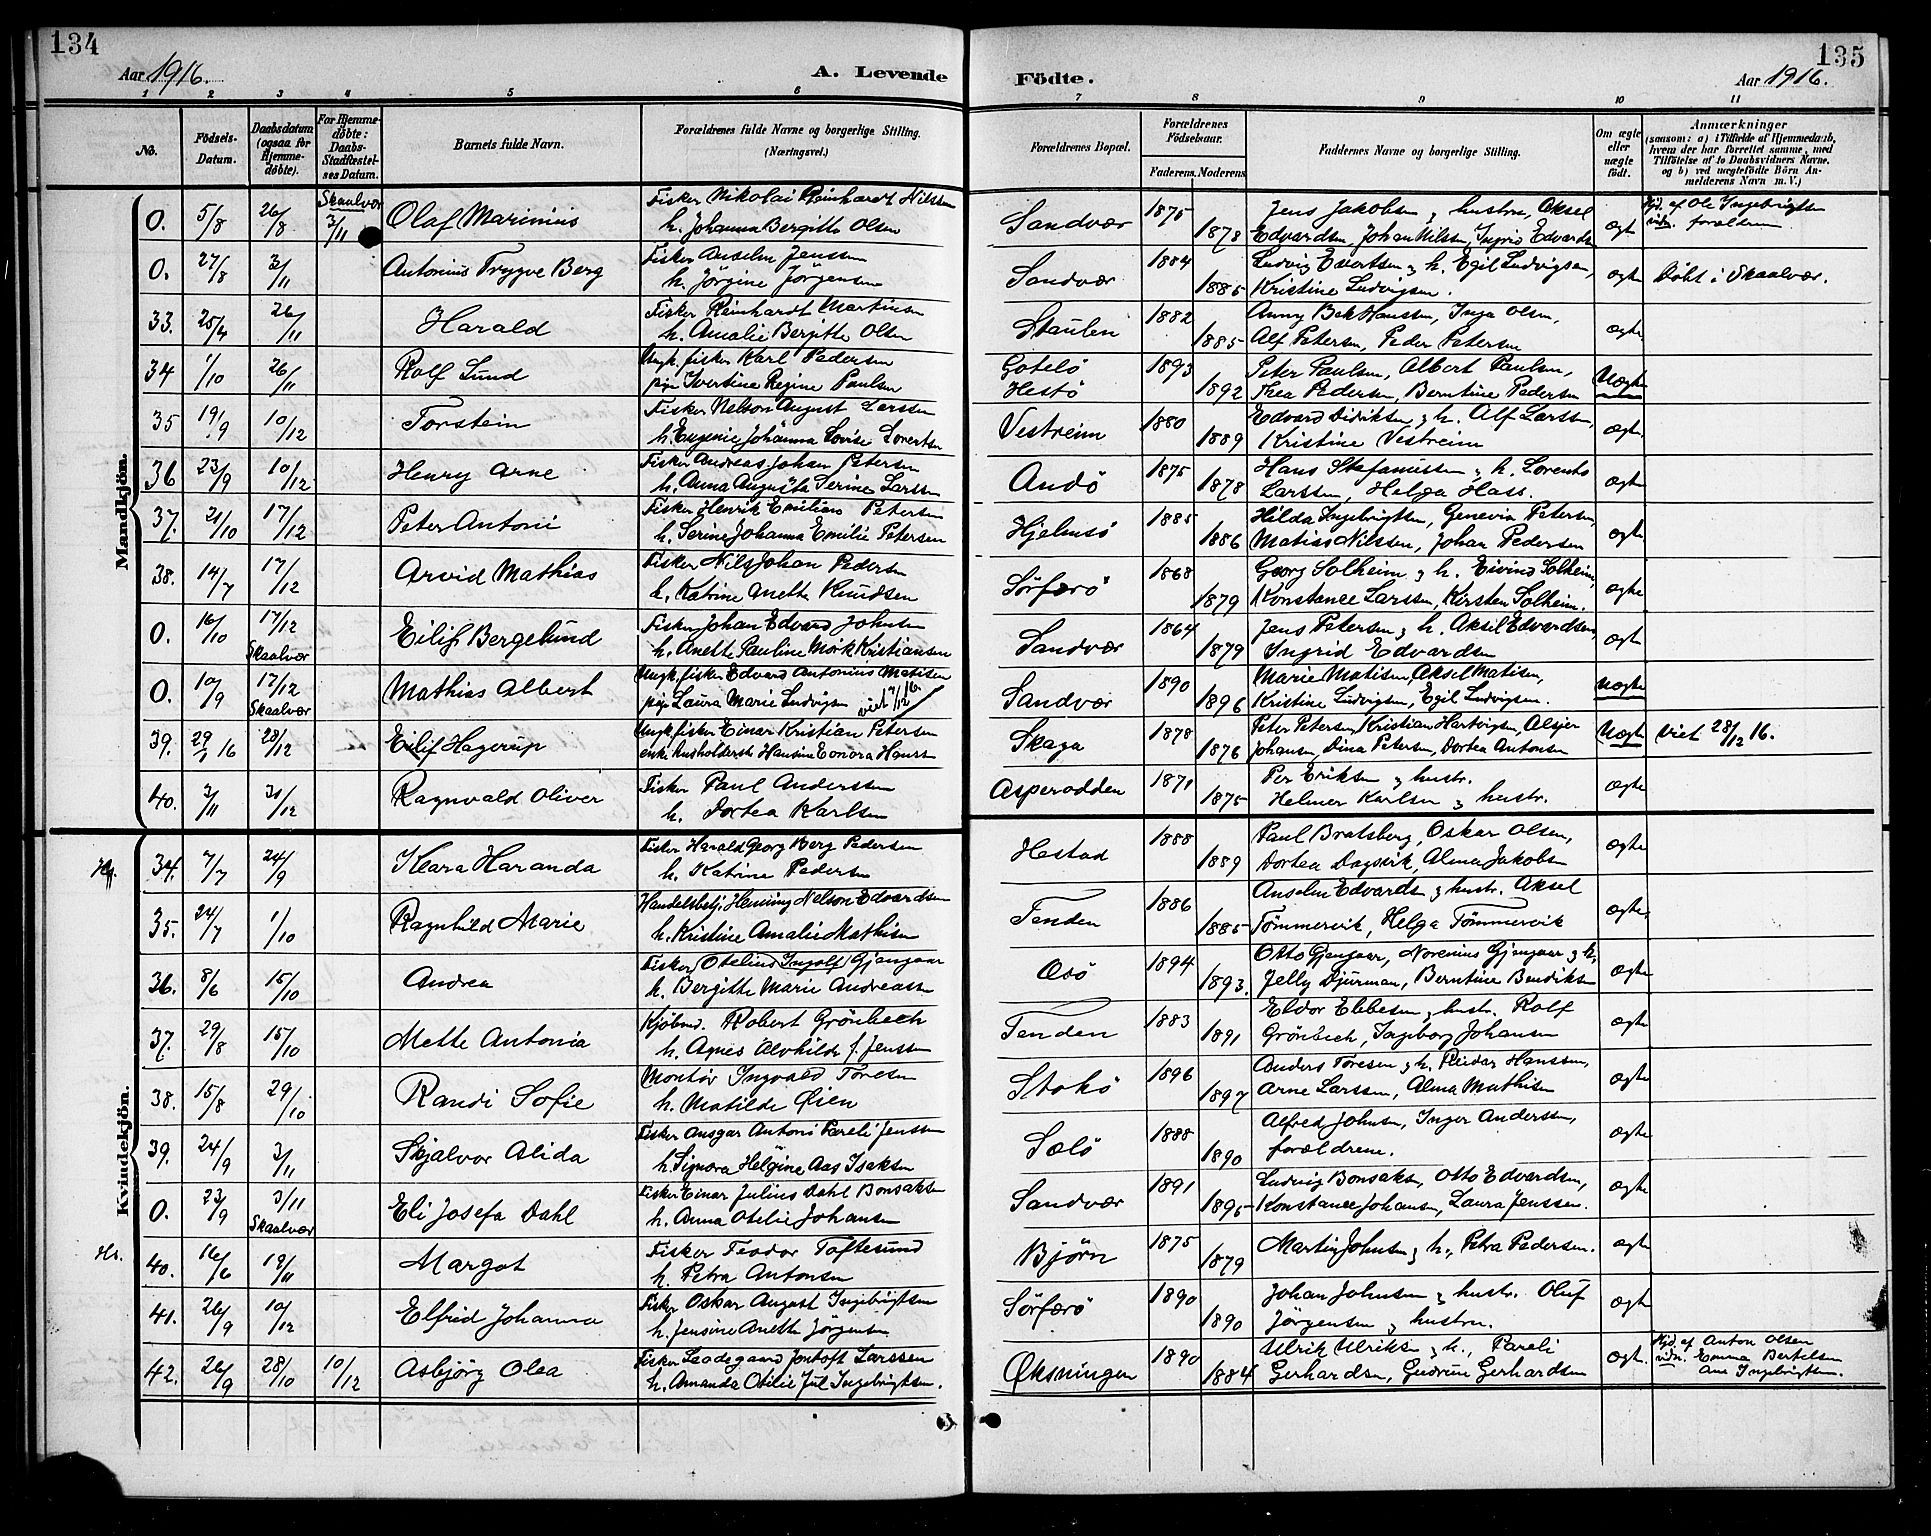 134
135
Aar 1916.
A. Levende
Födte.
Aar 1916.
1 2 3 4 5 6 7 8 9 10 11
No.
Födsels-Datum.
Daabsdatum (ogsaa for Hjemme-døbte).
For Hjemme-døbte: Daabs-Stadfæstel-ses Datum.
Barnets fulde Navn.
Forældrenes fulde Navne og borgerlige Stilling.
(Næringsvej.)
Forældrenes Bopæl.
Forældrenes Födselsaar.
Faderens. Moderens.
Faddernes Navne og borgerlige Stilling.
Om ægte eller uægte födt.
Anmærkninger
(saasom: a) i Tilfælde af Hjemmedaab, hvem der har forrettet samme, med Tilføielse af to Daabsvidners Navne, og b) ved uægtefödte Börn An-melderens Navn m. V.)
Mandkjön.
0. 5/8 26/8 Skaalvær 3/11 Olaf Marinius Fisker Nikolai Reinhardt Nilssen
h. Johanna Bergitte Olsen Sandvær 1875 1878 Jens Jakobsen & hustru, Aksel
Edvardsen, Johan Nilssen, Ingrid Edvardsen ægte Hjd. af Ole Ingebrigtsen
vidn. forældrene
0. 27/8 3/11 Antonius Trygve Berg Fisker Anselm Jenssen
h. Jörgine Jörgensen Sandvær 1884 1885 Ludvig Edvartsen & h. Egil Ludvigsen,
Kristine Ludvigsen. ægte Döbt i Skaalvær.
33. 25/4 26/11 Harald Fisker Reinhardt Martinsen
h. Amalie Bergitte Olsen Staulen 1882 1885 Anny Bek Hanssen, Inga Olsen,
Alf Petersen, Peder Petersen ægte
34 1/10 26/11 Rolf Lund Ungk. fisker Karl Pedersen
pige Ivertine Regine Paulsen Hestö 1893 1892 Peter Paulsen, Albert Paulsen,
Thea Pedersen, Berntine Pedersen Uægte
35 19/9 10/12 Torstein Fisker Nelson August Larssen
h. Eugenie Johanna Lovise Lorentsen Vestreim 1880 1889 Edvard Didriksen & h. Alf Larssen
Kristine Vestreim ægte
36 23/9 10/12 Henry Arne Fisker Andreas Johan Petersen
h. Anna Augusta Serine Larssen Andö 1875 1878 Hans Stefanussen & h. Lorents
Larssen, Helga Hass. ægte
37. 21/10 17/12 Peter Antoni Fisker Henrik Emilian Petersen
h. Serine Johanna Emilie Petersen Hjelmsö 1885 1886 Hilda Ingebrigtsen, Genevia Petersen,
Matias Nilssen, Johan Pedersen ægte
38. 14/7 17/12 Arvid Mathias Fisker Nils Johan Pedersen
h. Katrine Anette Knudsen Sörfærö 1868 1879 Georg Solheim & h. Eivind Solheim,
Konstance Larssen, Kirsten Solheim. ægte
0. 16/10 17/12 Skaalvær Eilif Bergelund Fisker Johan Edvard Johnsen
h. Anette Pauline Mörk Kristiansen Sandvær 1864 1879 Jens Petersen & h. Aksel Edvardsen,
Ingrid Edvardsen ægte
0. 10/9 17/12 Skaalvær Mathias Albert Ungk. fisker Edvard Antonius Matisen
pige Laura Marie Ludvigsen Sandvær 1890 1896 Marie Matisen, Aksel Matisen,
Kristine Ludvigsen, Egil Ludvigsen. Uægte
39. 29/ 16 28/12 Eilif Hagerup Ungk. fisker Einar Kristian Petersen
enke husholderske Hansine Eonora Skaga 1878 1876 Peter Petersen, Kristian Hartvigsen,
Johansen, Dina Petersen, Dortea Antonsen Uægte viet 28/12 16.
40. 3/11 31/12 Ragnvald Oliver Fisker Paul Anderssen
h. Dortea Karlsen Asperodden 1871 1875 Per Eriksen & hustr.
Helmer Karlsen & hustr. ægte
Kvindekjön.
34. 7/7 24/9 Klara Haranda Fisker Harald Georg Berg Pedersen
h. Katrine Pedersen Hestad 1888 1889 Paul Bratsberg, Oskar Olsen,
Dortea Dagsvik, Alma Jakobsen ægte
35. 24/7 1/10 Ragnhild Marie Handelsbetj. Henning Nelson Edvardsen
h. Kristine Amalie Mathisen Tenden 1886 1885 Anselm Edvards & hustr. Aksel
Tömmervik, Helga Tömmervik ægte
36. 8/6 15/10 Andrea Fisker Otelius Ingolf Gjengaar
h. Bergitte Marie Andreassen 1894 1893. Otto Gjengaar, Norenius Gjengaar & h,
Jelly Djurman, Berntine Bendiksen ægte
37. 29/8 15/10 Mette Antonia Kjöbmd. Robert Grönbech
h. Agnes Alvhilde f. Jenssen Tenden 1883 1891 Eldor Ebbesen & hustr. Rolf
Grönbech, Ingeborg Johansen ægte
38. 15/8 29/10 Randi Sofie Montör Ingvald Toresen
h. Matilde Öien Stokö 1896 1897 Anders Toresen & h. Reidar Hanssen,
Arne Larssen, Alma Mathisen ægte
39. 24/9 3/11 Skjalvor Alida Fisker Ansgar Antoni Pareli Jenssen
h. Signora Helgine Aas Isaksen Sælö 1888 1890 Alfred Johnsen, Inger Anderssen,
forældrene. ægte
0. 23/9 3/11 Skaalvær Eli Josefa Dahl Fisker Einar Julius Dahl Bonsaksen
h. Anna Otelie Johansen Sandvær 1891 1895 Ludvig Bonsaksen, Otto Edvardsen,
Konstance Johansen, Laura Jenssen. ægte
Hs. 40. 16/6 19/11 Margot Fisker Teodor Toftesund
h. Petra Antonsen Björn 1875 1879 Martin Johnsen & h., Petra Pedersen. ægte
41. 26/9 10/12 Elfrid Johanna Fisker Oskar August Ingebrigtsen
h. Jensine Anette Jörgensen Sörfærö 1890 1890 Johan Johnsen & hustr. Oluf
Jörgensen & hustru. ægte
42. 26/9 28/10 10/12 Asbjörg Olea Fisker Leodegaard Jentoft Larssen
h. Amanda Otilie Jul Ingebrigtsen. Öksningen 1890 1884 Ulrik Ulriksen & h., Pareli
Gerhardsen, Gudrun Gerhardsen ægte Hjd. af Anton Olsen
vidn. Emma Bertelsen
Ane Ingebrigtsen.